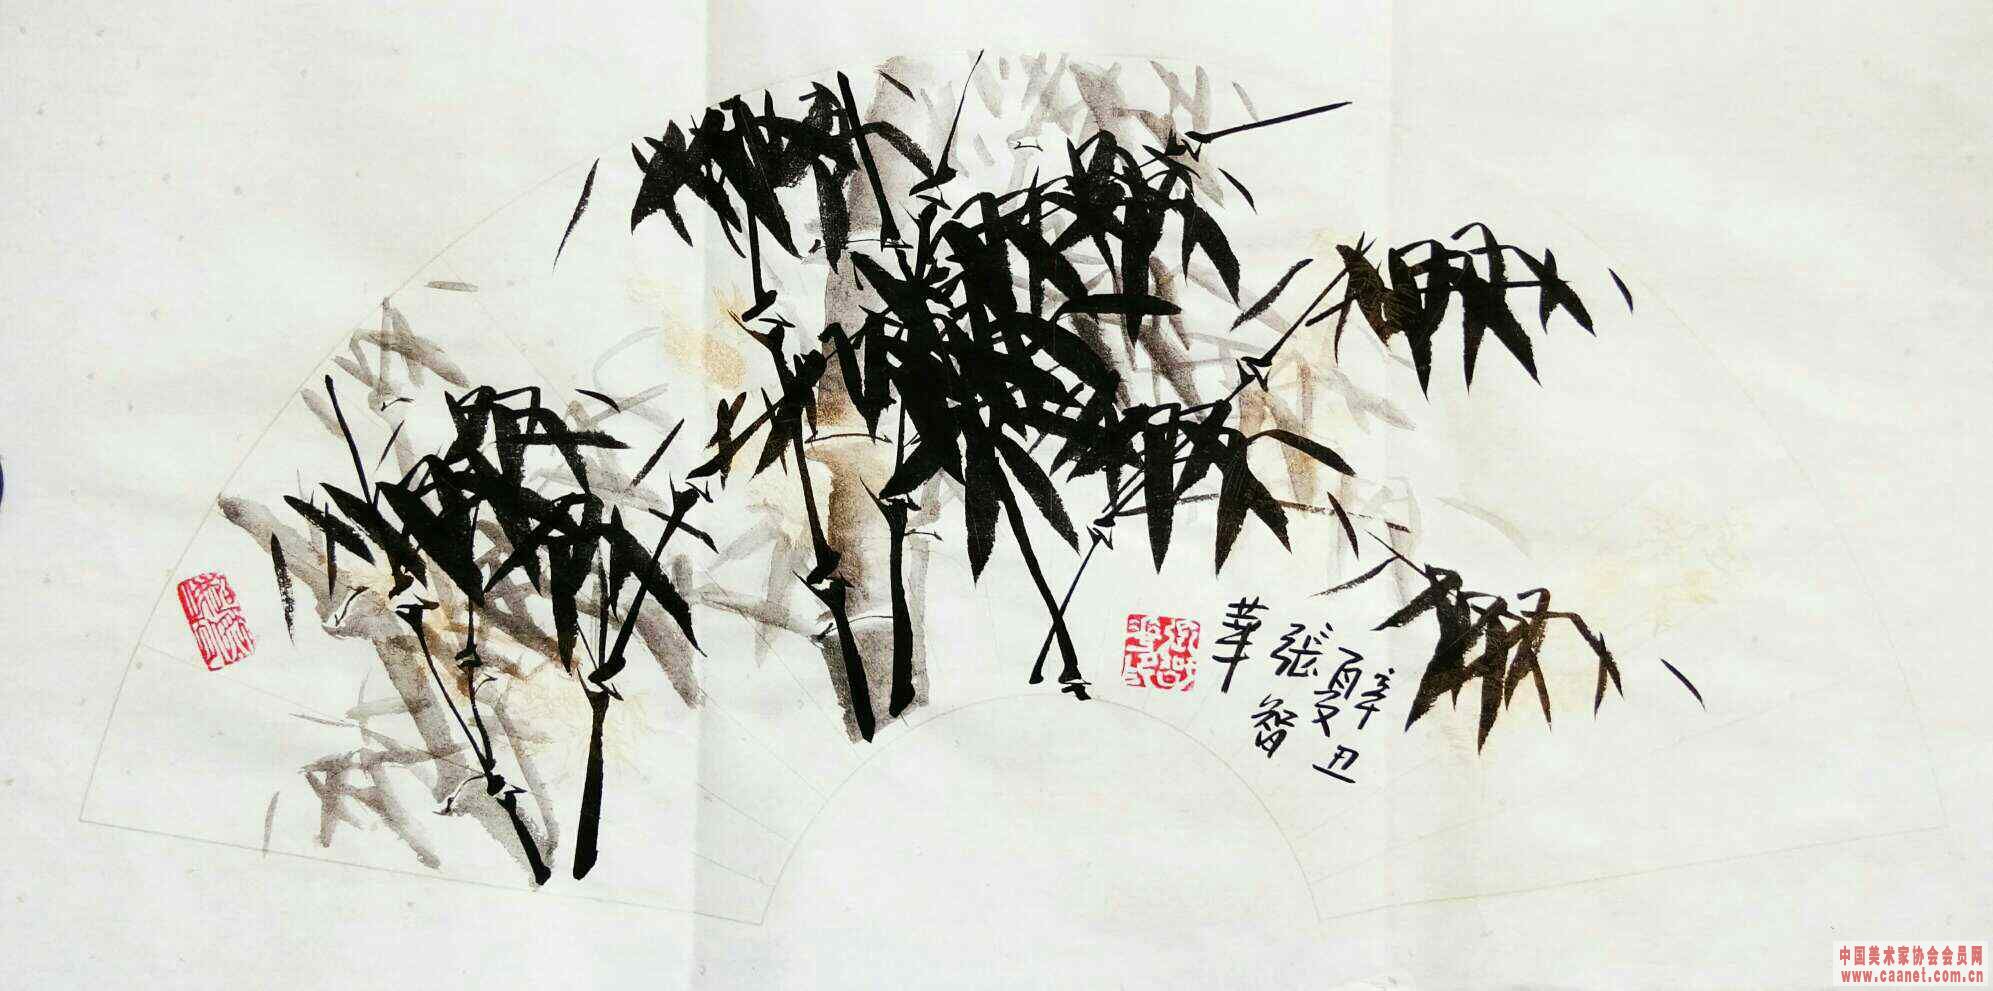 辛丑
夏
張智
華
中国美术家协会会员网
www.caanet.com.cn